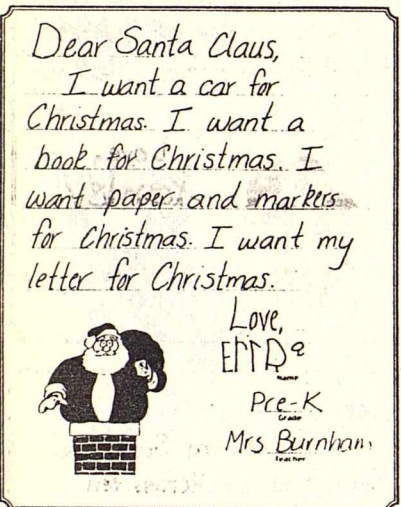 Dear Santa Claus,
I want a car for
Christmas. I want a
book for Christmas. I
want paper and markers
for Christmas. I want my
letter for Christmas.
Love,
Name
Pre-K
Grade
Mrs Burnham
Teacher